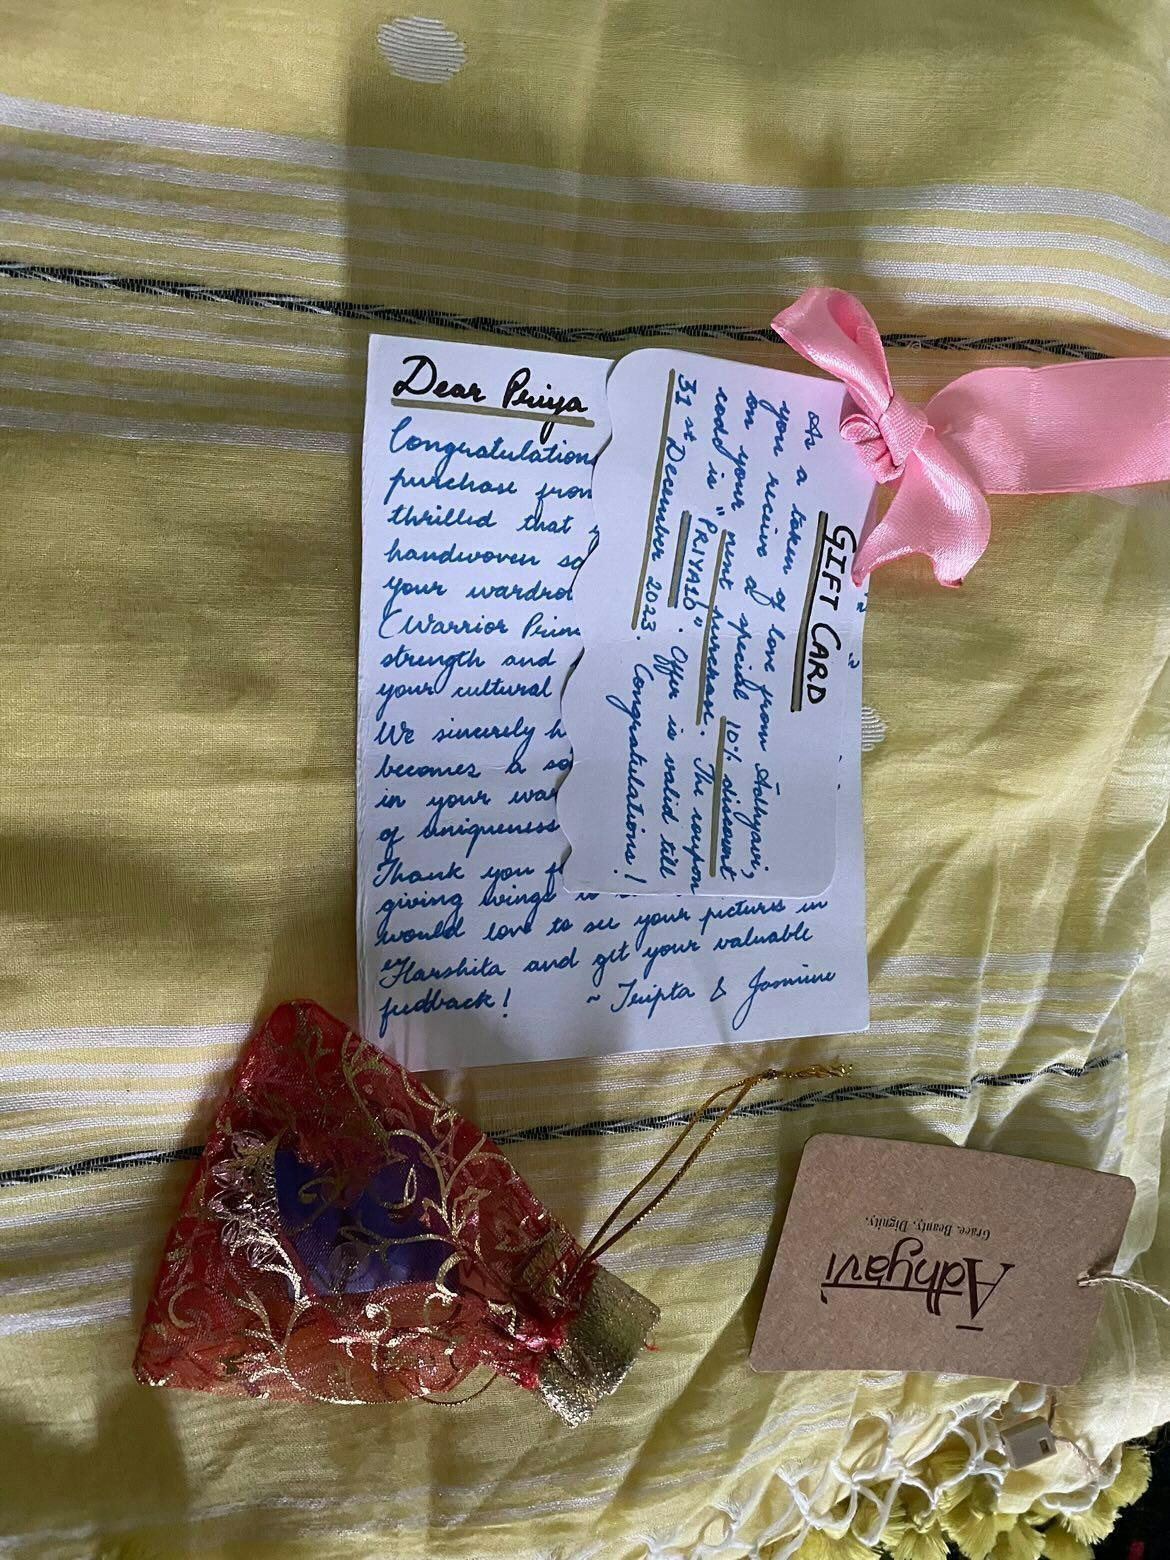 Dear Priya
Congratulation
purchase from
thrilled that
handwoven sa
your wardro
(Warrior Prin
strength and
your cultural
We sincerely h
becomes a so
in your war
of uniqueness
Thank you f
giving wings
would love to see your pictures in
Harshita and get your valuable
feedback! ~ Tripta & Jasmine
GIFT CARD
As a token of love from Ādhyavi,
you receive a special 10% discount
on your next purchase. The coupon
code is "PRIYA10". Offer is valid till
31st December 2023. Congratulations!
Ādhyavi
Grace. Beauty. Dignity.